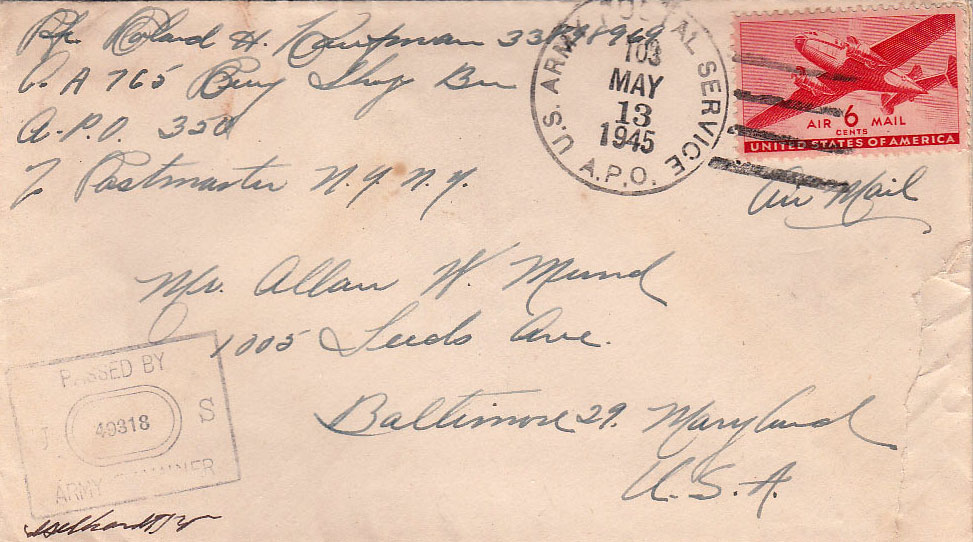 Pfc Roland H. Kaufman
Co. A 765 Ry Shop Bn
A.P.O. 350
% Postmaster N.Y. N.Y.
U.S. ARMY POSTAL SERVICE
103
MAY
13
1945
A.P.O.
AIR 6 MAIL
CENTS
UNITED STATES OF AMERICA
Air Mail
Mr. Allan W. Mund
1005 Leeds Ave.
Baltimore 29. Maryland
U.S.A.
PASSED BY
U. 49318 S
ARMY EXAMINER